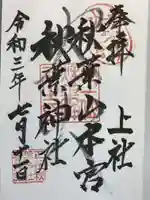 奉拝
上社
秋葉山本宮
秋葉神社
令和三年
七月十一日